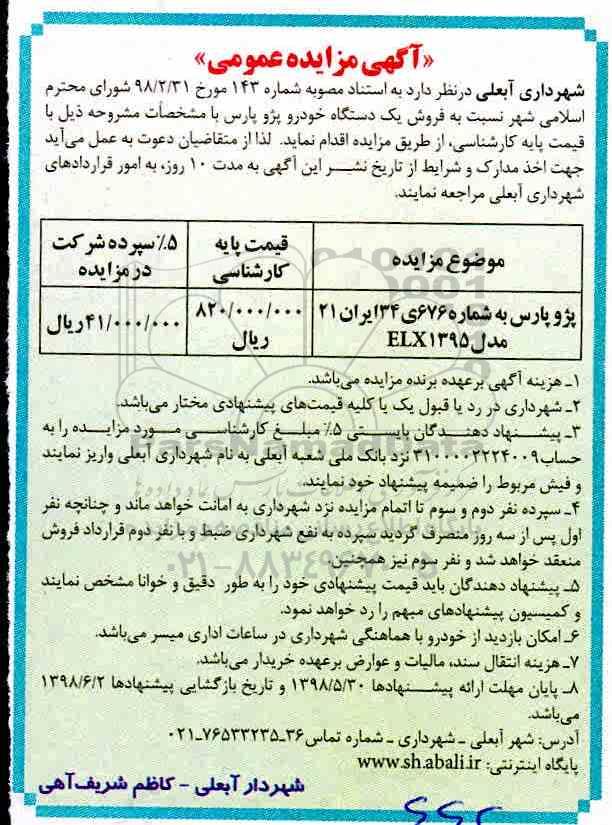 «آگهی مزایده عمومی»
شهرداری آبعلی درنظر دارد به استناد مصوبه شماره ۱۴۳ مورخ ۹۸/۲/۳۱ شورای محترم
اسلامی شهر نسبت به فروش یک دستگاه خودرو پژو پارس با مشخصات مشروحه ذیل با
قیمت پایه کارشناسی، از طریق مزایده اقدام نماید. لذا از متقاضیان دعوت به عمل می‌آید
جهت اخذ مدارک و شرایط از تاریخ نشر این آگهی به مدت ۱۰ روز، به امور قراردادهای
شهرداری آبعلی مراجعه نمایند.
موضوع مزایده
قیمت پایه
کارشناسی
۵٪ سپرده شرکت
در مزایده
پژو پارس به شماره ۶۷۶ی۳۴ ایران ۲۱
مدل ELX۱۳۹۵
۸۲۰/۰۰۰/۰۰۰
ریال
۴۱/۰۰۰/۰۰۰ ریال
۱ـ هزینه آگهی برعهده برنده مزایده می‌باشد.
۲ـ شهرداری در رد یا قبول یک یا کلیه قیمت‌های پیشنهادی مختار می‌باشد.
۳ـ پیشنهاد دهندگان بایستی ۵٪ مبلغ کارشناسی مورد مزایده را به
حساب ۳۱۰۰۰۰۲۲۲۴۰۰۹ نزد بانک ملی شعبه آبعلی به نام شهرداری آبعلی واریز نمایند
و فیش مربوط را ضمیمه پیشنهاد خود نمایند.
۴ـ سپرده نفر دوم و سوم تا اتمام مزایده نزد شهرداری به امانت خواهد ماند و چنانچه نفر
اول پس از سه روز منصرف گردید سپرده به نفع شهرداری ضبط و با نفر دوم قرارداد فروش
منعقد خواهد شد و نفر سوم نیز همچنین.
۵ـ پیشنهاد دهندگان باید قیمت پیشنهادی خود را به طور دقیق و خوانا مشخص نمایند
و کمیسیون پیشنهادهای مبهم را رد خواهد نمود.
۶ـ امکان بازدید از خودرو با هماهنگی شهرداری در ساعات اداری میسر می‌باشد.
۷ـ هزینه انتقال سند، مالیات و عوارض برعهده خریدار می‌باشد.
۸ـ پایان مهلت ارائه پیشنهادها ۱۳۹۸/۵/۳۰ و تاریخ بازگشایی پیشنهادها ۱۳۹۸/۶/۲
می‌باشد.
آدرس: شهر آبعلی ـ شهرداری ـ شماره تماس ۳۶ـ۷۶۵۳۳۲۳۵ـ۰۲۱
پایگاه اینترنتی: www.sh.abali.ir
شهردار آبعلی - کاظم شریف‌آهی